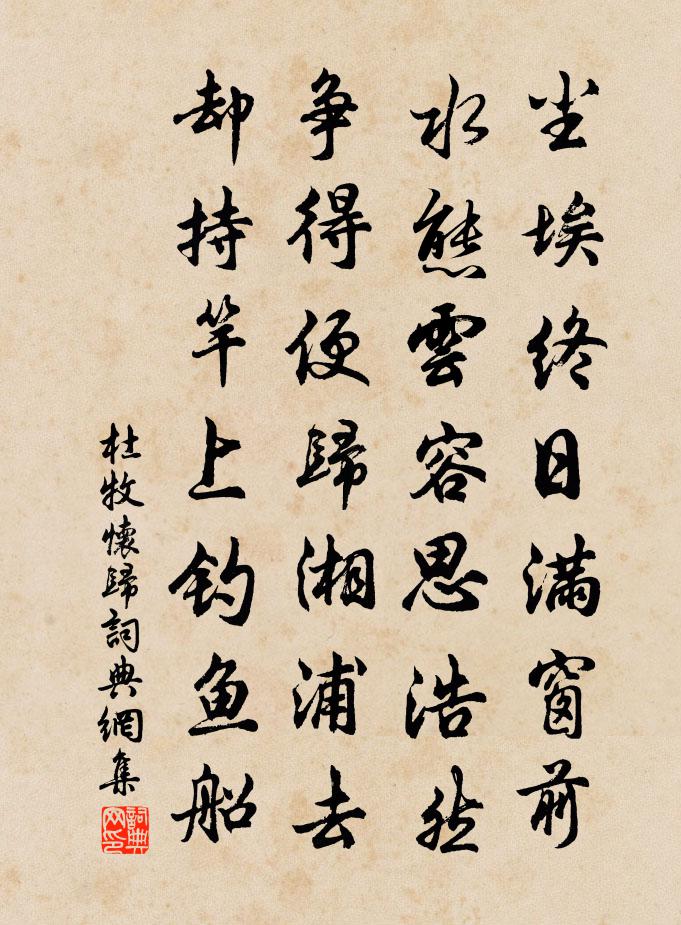 尘埃终日满窗前
水態雲容思浩然
争得便歸湘浦去
却持竿上钓鱼船
杜牧懷歸詞典網集
詞典网印